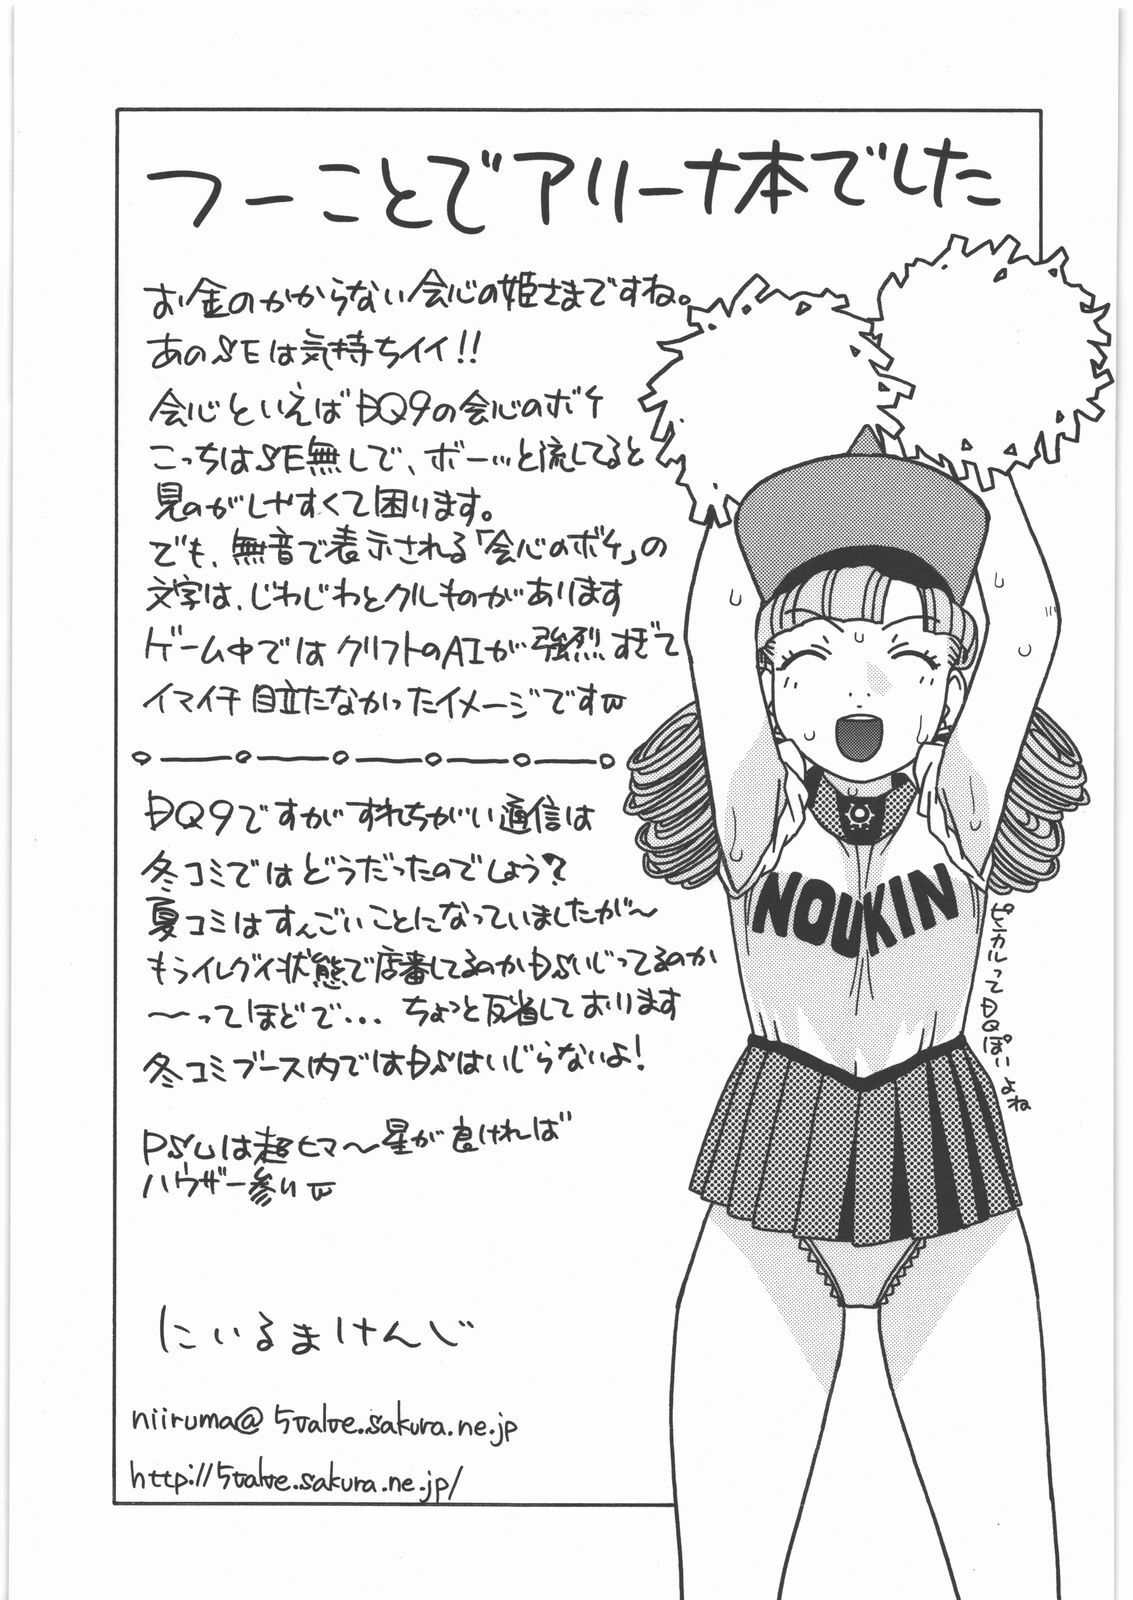 つーことでアリーナ本でした
お金のかからない会心の姫さまですね。
あのSEは気持ちイイ!!
会心といえばDQ9の会心のボケ
こっちはSE無しで、ボーッと流してると
見のがしやすくて困ります。
でも、無音で表示される「会心のボケ」の
文字は、じわじわとクルものがあります
ゲーム中ではクリフトのAIが強烈すぎて
イマイチ目立たなかったイメージですw
DQ9ですがすれちがい通信は
冬コミではどうだったのでしょう?
夏コミはすんごいことになっていましたが〜
もうイレグイ状態で店番してるのかDSいじってるのか
〜ってほどで... ちょっと反省しております
冬コミブース内ではDSはいじらないよ!
PSUは超ヒマ〜星が良ければ
ハウザー参りw
にいるまけんじ
niiruma@5valve.sakura.ne.jp
http://5valve.sakura.ne.jp/
NOUKIN
ピンカルってDQぽいよね